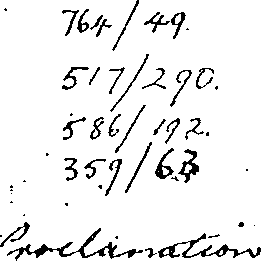 764/49.
517/290.
586/192.
359/63
Proclamation